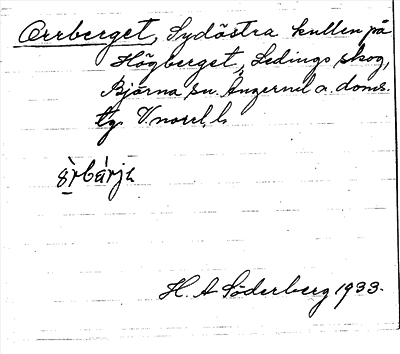 Orrberget, Sydöstra kullen på
Högberget, Ledings skog,
Björna sn. Ångerml a. doms.
tg. V.norrl. l.
H. A Söderberg 1933.